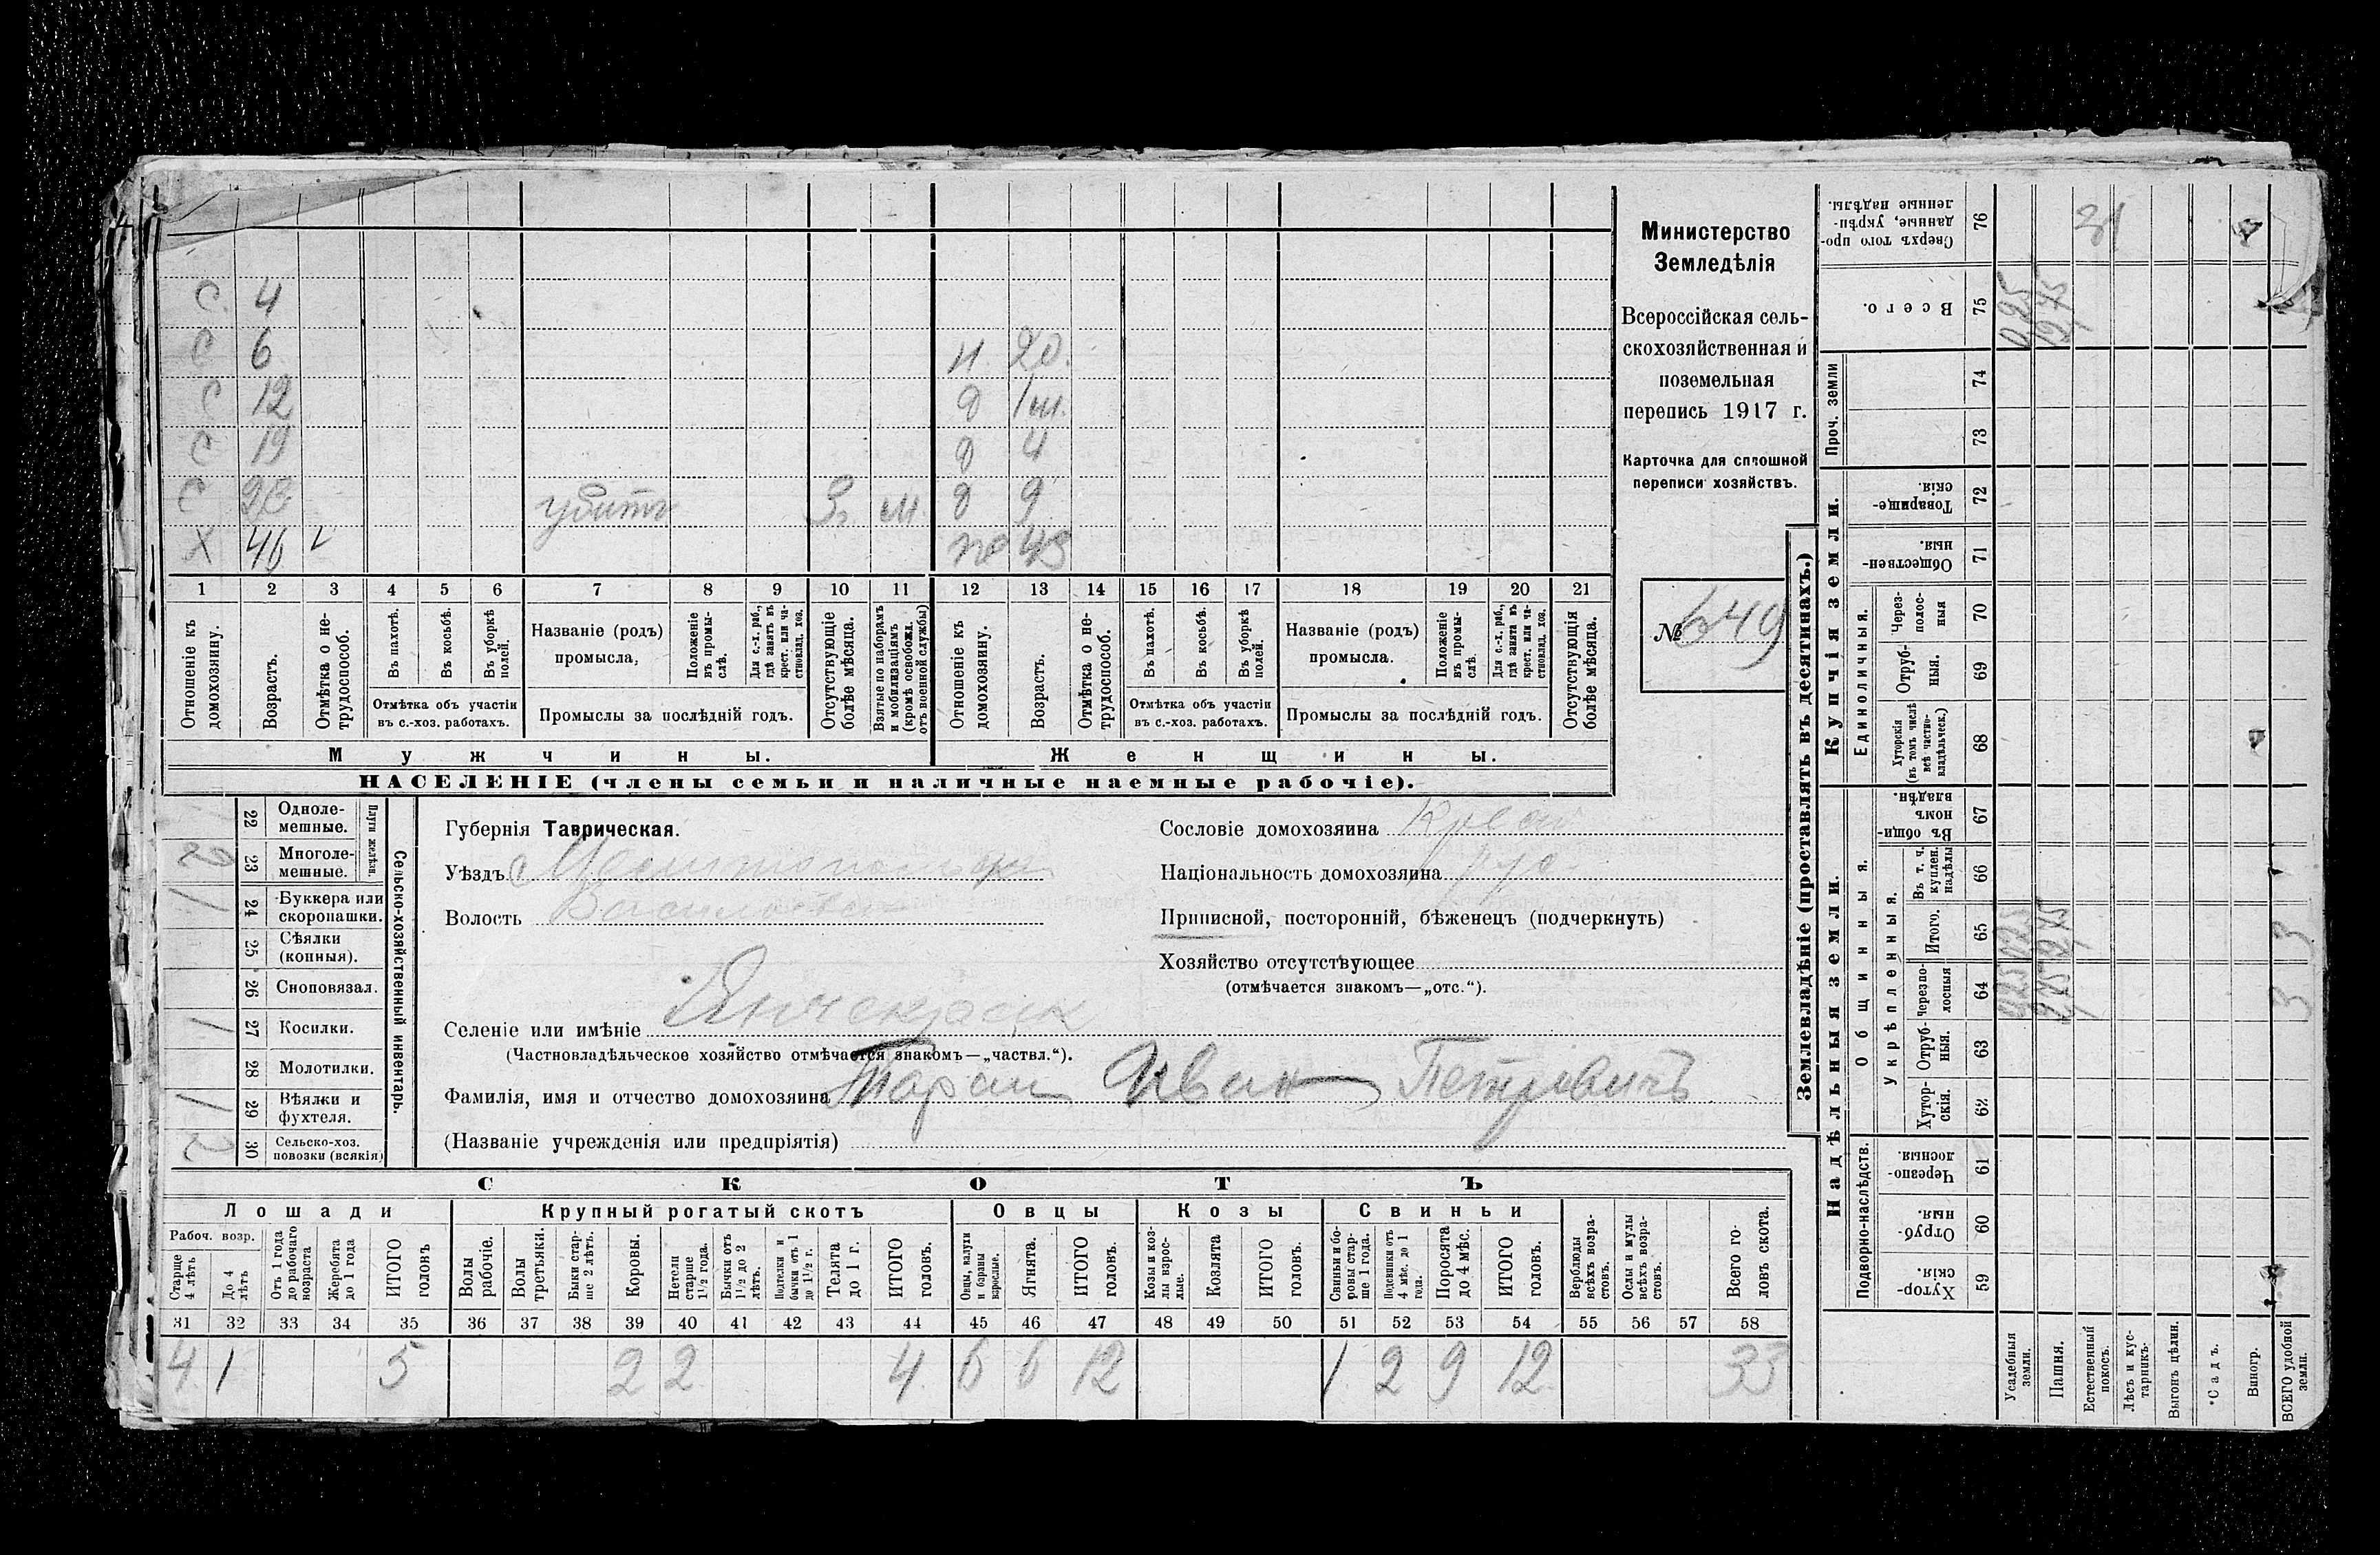 С 4
С 6
С 12
С 19
С
Х 46
убитъ
м
20.
д
д 4
д 9
1 2 3 4 5 6 7 8 9 10 11 12 13 14 15 16 17 18 19 20 21
Отношеніе къ домохозяину.
Возрастъ.
Отмѣтка о не-трудоспособ.
Въ пахотѣ.
Въ косьбѣ.
Въ уборкѣ полей.
Отмѣтка объ участіи
въ с.-хоз. работахъ.
Названіе (родъ)
промысла,
Положеніе въ промы-слѣ.
Для с.-х. раб., гдѣ занятъ въ крест. или ча-стновлад. хоз.
Промыслы за послѣдній годъ.
Отсутствующіе болѣе мѣсяца.
Взятые по наборамъ и мобилизаціямъ (кромѣ освобожд. отъ военной службы)
Отношеніе къ домохозяину.
Возрастъ.
Отмѣтка о не-трудоспособ.
Въ пахотѣ.
Въ косьбѣ.
Въ уборкѣ полей.
Отмѣтка объ участіи
въ с.-хоз. работахъ.
Названіе (родъ)
промысла.
Положеніе въ промы-слѣ.
Для с.-х. раб., гдѣ занята въ крест. или ча-стновлад. хоз.
Промыслы за послѣдній годъ.
Отсутствующія болѣе мѣсяца.
Мужчины.
Женщины.
НАСЕЛЕНІЕ (члены семьи и наличные наемные рабочіе).
Министерство
Земледѣлія
Всероссійская сель-
скохозяйственная и
поземельная
перепись 1917 г.
Карточка для сплошной
переписи хозяйствъ.
№ 649
Сельско-хозяйственный инвентарь.
Плуги желѣзн.
22 Одноле-мешные.
2 23 Многоле-мешные.
1 24 Буккера или скоропашки.
25 Сѣялки (конныя).
26 Сноповязал.
1 27 Косилки.
28 Молотилки.
1 29 Вѣялки и фухтеля.
2 30 Сельско-хоз. повозки (всякія)
Губернія Таврическая.
Уѣздъ
Волость
Селеніе или имѣніе Янчекракъ
(Частновладѣльческое хозяйство отмѣчается знакомъ—„частвл.“).
Фамилія, имя и отчество домохозяина Таран Иван Петровичъ
(Названіе учрежденія или предпріятія)
Сословіе домохозяина
Національность домохозяина рус
Приписной, посторонній, бѣженецъ (подчеркнуть)
Хозяйство отсутствующее
(отмѣчается знакомъ—„отс.“).
СКОТЪ
Лошади
Крупный рогатый скотъ
Овцы
Козы
Свиньи
Рабоч. возр.
Старше 4 лѣтъ
До 4 лѣтъ
Отъ 1 года до рабочаго возраста
Жеребята до 1 года
ИТОГО головъ
Волы рабочіе.
Волы третьяки.
Быки стар-ше 2 лѣтъ.
Коровы.
Нетели старше 1½ года.
Бычки отъ 1½ до 2 лѣтъ.
Подтелки и бычки отъ 1 до 1½ г.
Телята до 1 г.
ИТОГО головъ.
Овцы, валухи и бараны взрослые.
Ягнята.
ИТОГО головъ.
Козы и коз-лы взрос-лые.
Козлята
ИТОГО головъ.
Свиньи и бо-ровы стар-ше 1 года.
Подсвинки отъ 4 мѣс. до 1 года.
Поросята до 4 мѣс.
ИТОГО головъ.
Верблюды всѣхъ возра-стовъ.
Ослы и мулы всѣхъ возра-стовъ.
Всего го-ловъ скота.
31 32 33 34 35 36 37 38 39 40 41 42 43 44 45 46 47 48 49 50 51 52 53 54 55 56 57 58
4 1 5 2 2 4 6 6 12 1 2 9 12 33
Землевладѣніе (проставлять въ десятинахъ.)
Купчія земли.
Надѣльныя земли.
Сверхъ того про-данные, укрѣп-ленные надѣлы. 76
Всего. 75
Проч. земли
74
73
Товарище-скія. 72
Обществен-ныя. 71
Единоличныя.
Через-полос-ныя 70
Отруб-ныя. 69
Хуторскія (въ томъ числѣ всѣ частно-владѣльческ.) 68
Общинныя.
Въ общи-номъ владѣн. 67
Укрѣпленныя.
Въ т. ч. куплен. надѣлы 66
Итого. 65
Черезпо-лосныя 64
Отруб-ныя. 63
Хутор-скія. 62
Подворно-наслѣдств.
Черезпо-лосныя. 61
Отруб-ныя. 60
Хутор-скія. 59
Усадебныя земли.
Пашня.
Естественный покосъ.
Лѣсъ и кус-тарникъ.
Выгонъ цѣлин.
Садъ.
Виногр.
ВСЕГО удобной земли.
3 3